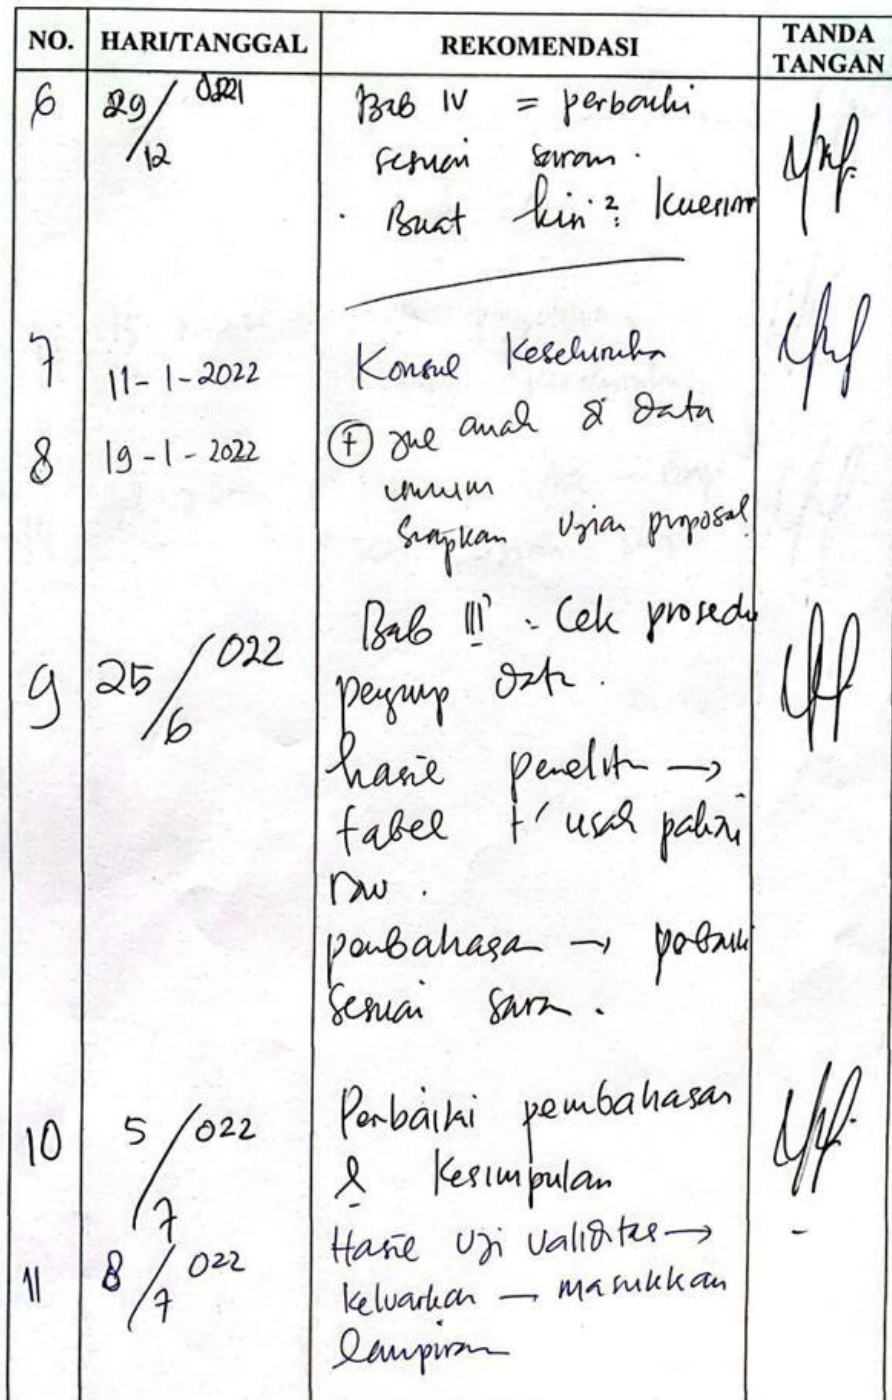 NO. HARI/TANGGAL REKOMENDASI TANDA TANGAN
6 29/12 021 Bab IV = perbaiki
sesuai saran.
Buat kisi²: kuesion
7 11-1-2022 Konsul Keseluruha
8 19-1-2022 + jml anak di data
umum
Siapkan Ujian proposal
9 25/6 022 Bab III: Cek prosedu
data.
hasil penelit →
tabel t' usah pakai
row.
pembahasa → perbaiki
sesuai saran.
10 5/7 022 Perbaiki pembahasan
& Kesimpulan
11 8/7 022 Hasil Uji Validitas →
keluarkan — masukkan
lampiran